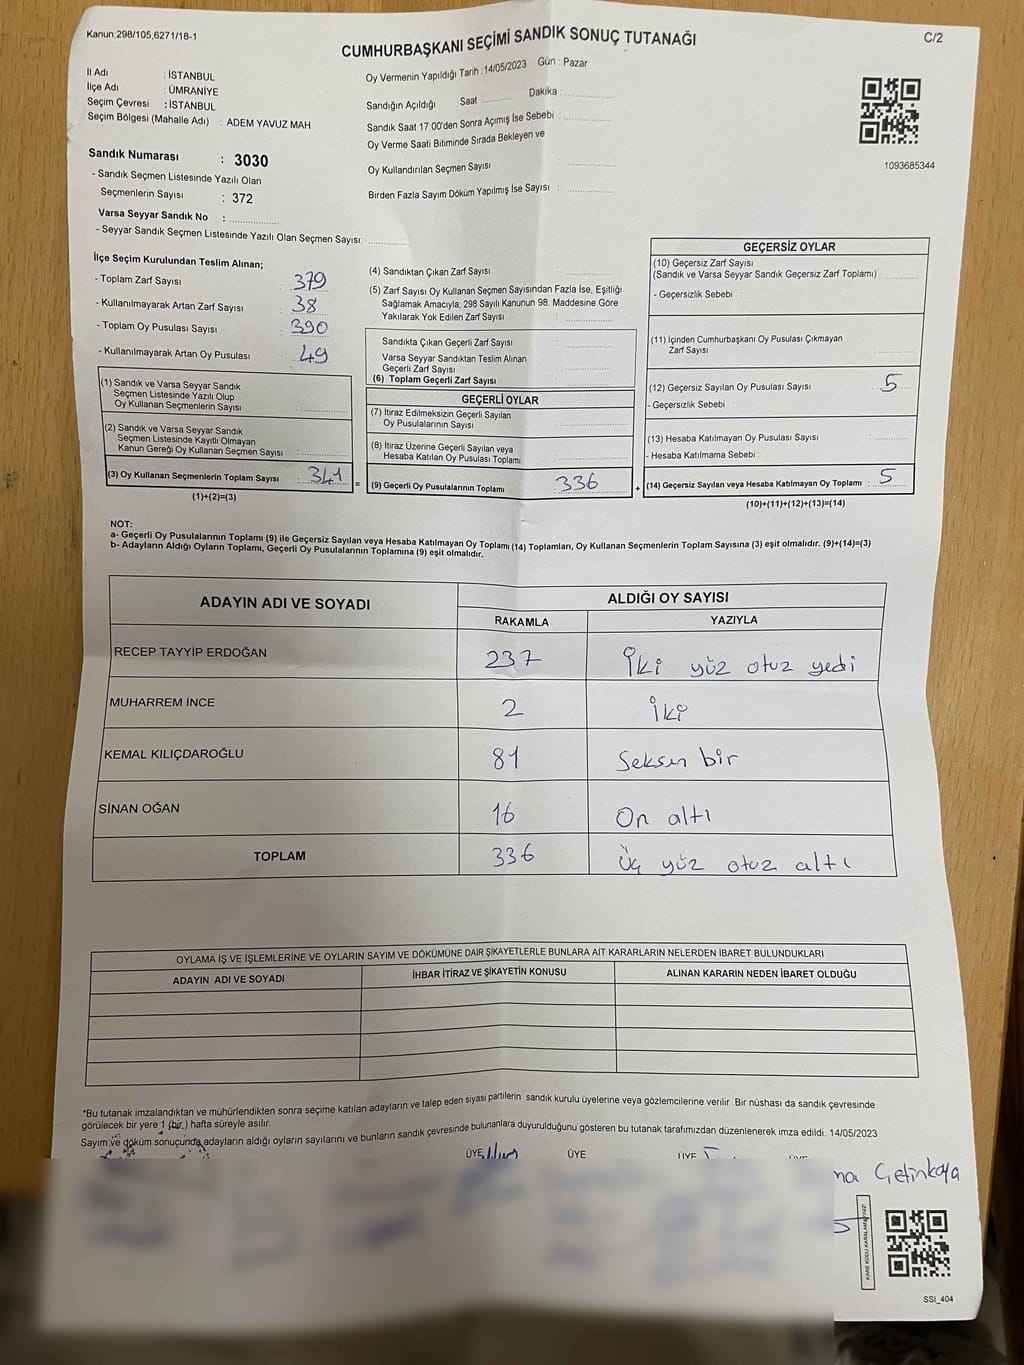 Kanun:298/105,6271/18-1
CUMHURBAŞKANI SEÇİMİ SANDIK SONUÇ TUTANAĞI
C/2
İl Adı : İSTANBUL
İlçe Adı : ÜMRANİYE
Seçim Çevresi : İSTANBUL
Seçim Bölgesi (Mahalle Adı) : ADEM YAVUZ MAH
Sandık Numarası : 3030
- Sandık Seçmen Listesinde Yazılı Olan
Seçmenlerin Sayısı : 372
Varsa Seyyar Sandık No :
- Seyyar Sandık Seçmen Listesinde Yazılı Olan Seçmen Sayısı:
Oy Vermenin Yapıldığı Tarih :14/05/2023 Gün : Pazar
Sandığın Açıldığı Saat Dakika :
Sandık Saat 17:00'den Sonra Açımış İse Sebebi :
Oy Verme Saati Bitiminde Sırada Bekleyen ve
Oy Kullandırılan Seçmen Sayısı :
Birden Fazla Sayım Döküm Yapılmış İse Sayısı :
1093685344
İlçe Seçim Kurulundan Teslim Alınan;
- Toplam Zarf Sayısı : 379
- Kullanılmayarak Artan Zarf Sayısı : 38
- Toplam Oy Pusulası Sayısı : 390
- Kullanılmayarak Artan Oy Pusulası : 49
(1) Sandık ve Varsa Seyyar Sandık
Seçmen Listesinde Yazılı Olup
Oy Kullanan Seçmenlerin Sayısı :
(2) Sandık ve Varsa Seyyar Sandık
Seçmen Listesinde Kayıtlı Olmayan
Kanun Gereği Oy Kullanan Seçmen Sayısı :
(3) Oy Kullanan Seçmenlerin Toplam Sayısı : 341 =
(1)+(2)=(3)
(4) Sandıktan Çıkan Zarf Sayısı :
(5) Zarf Sayısı Oy Kullanan Seçmen Sayısından Fazla İse, Eşitliği
Sağlamak Amacıyla; 298 Sayılı Kanunun 98. Maddesine Göre
Yakılarak Yok Edilen Zarf Sayısı :
Sandıkta Çıkan Geçerli Zarf Sayısı :
Varsa Seyyar Sandıktan Teslim Alınan
Geçerli Zarf Sayısı :
(6) Toplam Geçerli Zarf Sayısı :
GEÇERLİ OYLAR
(7) İtiraz Edilmeksizin Geçerli Sayılan
Oy Pusulalarının Sayısı :
(8) İtiraz Üzerine Geçerli Sayılan veya
Hesaba Katılan Oy Pusulası Toplamı :
(9) Geçerli Oy Pusulalarının Toplamı : 336 +
GEÇERSİZ OYLAR
(10) Geçersiz Zarf Sayısı
(Sandık ve Varsa Seyyar Sandık Geçersiz Zarf Toplamı) :
- Geçersizlik Sebebi :
(11) İçinden Cumhurbaşkanı Oy Pusulası Çıkmayan
Zarf Sayısı :
(12) Geçersiz Sayılan Oy Pusulası Sayısı : 5
- Geçersizlik Sebebi :
(13) Hesaba Katılmayan Oy Pusulası Sayısı :
- Hesaba Katılmama Sebebi :
(14) Geçersiz Sayılan veya Hesaba Katılmayan Oy Toplamı : 5
(10)+(11)+(12)+(13)=(14)
NOT:
a- Geçerli Oy Pusulasının Toplamı (9) ile Geçersiz Sayılan veya Hesaba Katılmayan Oy Toplamı (14) Toplamları, Oy Kullanan Seçmenlerin Toplam Sayısına (3) eşit olmalıdır. (9)+(14)=(3)
b- Adayların Aldığı Oyların Toplamı, Geçerli Oy Pusulalarının Toplamına (9) eşit olmalıdır.
ADAYIN ADI VE SOYADI
ALDIĞI OY SAYISI
RAKAMLA YAZIYLA
RECEP TAYYİP ERDOĞAN 237 İki yüz otuz yedi
MUHARREM İNCE 2 İki
KEMAL KILIÇDAROĞLU 81 Seksen bir
SİNAN OĞAN 16 On altı
TOPLAM 336 Üç yüz otuz altı
OYLAMA İŞ VE İŞLEMLERİNE VE OYLARIN SAYIM VE DÖKÜMÜNE DAİR ŞİKAYETLERLE BUNLARA AİT KARARLARIN NELERDEN İBARET BULUNDUKLARI
ADAYIN ADI VE SOYADI İHBAR İTİRAZ VE ŞİKAYETİN KONUSU ALINAN KARARIN NEDEN İBARET OLDUĞU
*Bu tutanak imzalandıktan ve mühürlendikten sonra seçime katılan adayların ve talep eden siyasi partilerin sandık kurulu üyelerine veya gözlemcilerine verilir .Bir nüshası da sandık çevresinde
görülecek bir yere 1 (bir,) hafta süreyle asılır.
Sayım ve döküm sonuçunda adayların aldığı oyların sayılarını ve bunların sandık çevresinde bulunanlara duyurulduğunu gösteren bu tutanak tarafımızdan düzenlenerek imza edildi. 14/05/2023
ÜYE ÜYE ÜYE
Çetinkaya
KARE KODU KARALAMAYINIZ!
SSI_404